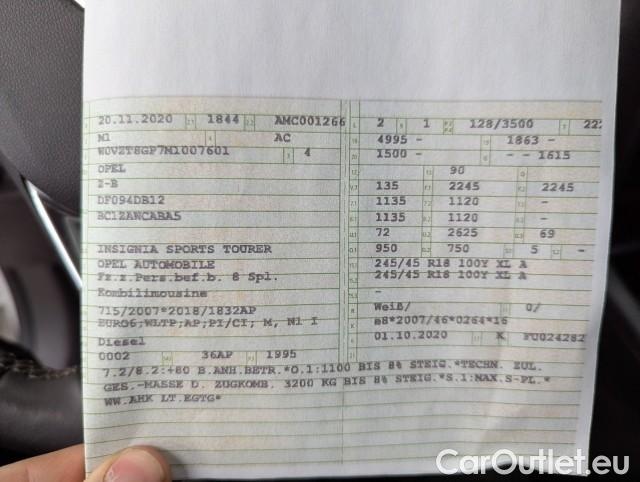 20.11.2020 1844 AMC001266
M1 AC
W0VZT8GP7M1007601 4
OPEL
Z-B
DF094DB12
BC12ANCABA5
INSIGNIA SPORTS TOURER
OPEL AUTOMOBILE
Fz.z.Pers.bef.b. 8 Spl.
Kombilimousine
715/2007*2018/1832AP
EURO6;WLTP;AP;PI/CI; M, N1 I
Diesel
0002 36AP 1995
2 1 128/3500 222
4995 - 1863 -
1500 - - - 1615
90
135 2245 2245
1135 1120 -
1135 1120 -
72 2625 69
950 750 5 -
245/45 R18 100Y XL A
245/45 R18 100Y XL A
-
Weiß/ 0/
e8*2007/46*0264*16
01.10.2020 K FU024282
7.2/8.2:+80 B.ANH.BETR.*O.1:1100 BIS 8% STEIG.*TECHN. ZUL.
GES.-MASSE D. ZUGKOMB. 3200 KG BIS 8% STEIG.*S.1:MAX.S-PL.*
WW.AHK LT.EGTG*
CarOutlet.eu